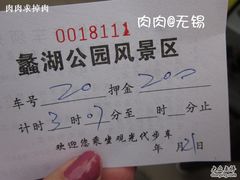 肉肉求掉肉
肉肉@无锡
0018111
蠡湖公园风景区
车号 20 押金 200
计时 3 时 07 分至 时 分止
欢迎您乘坐观光代步车
年 月 21 日
大众点评